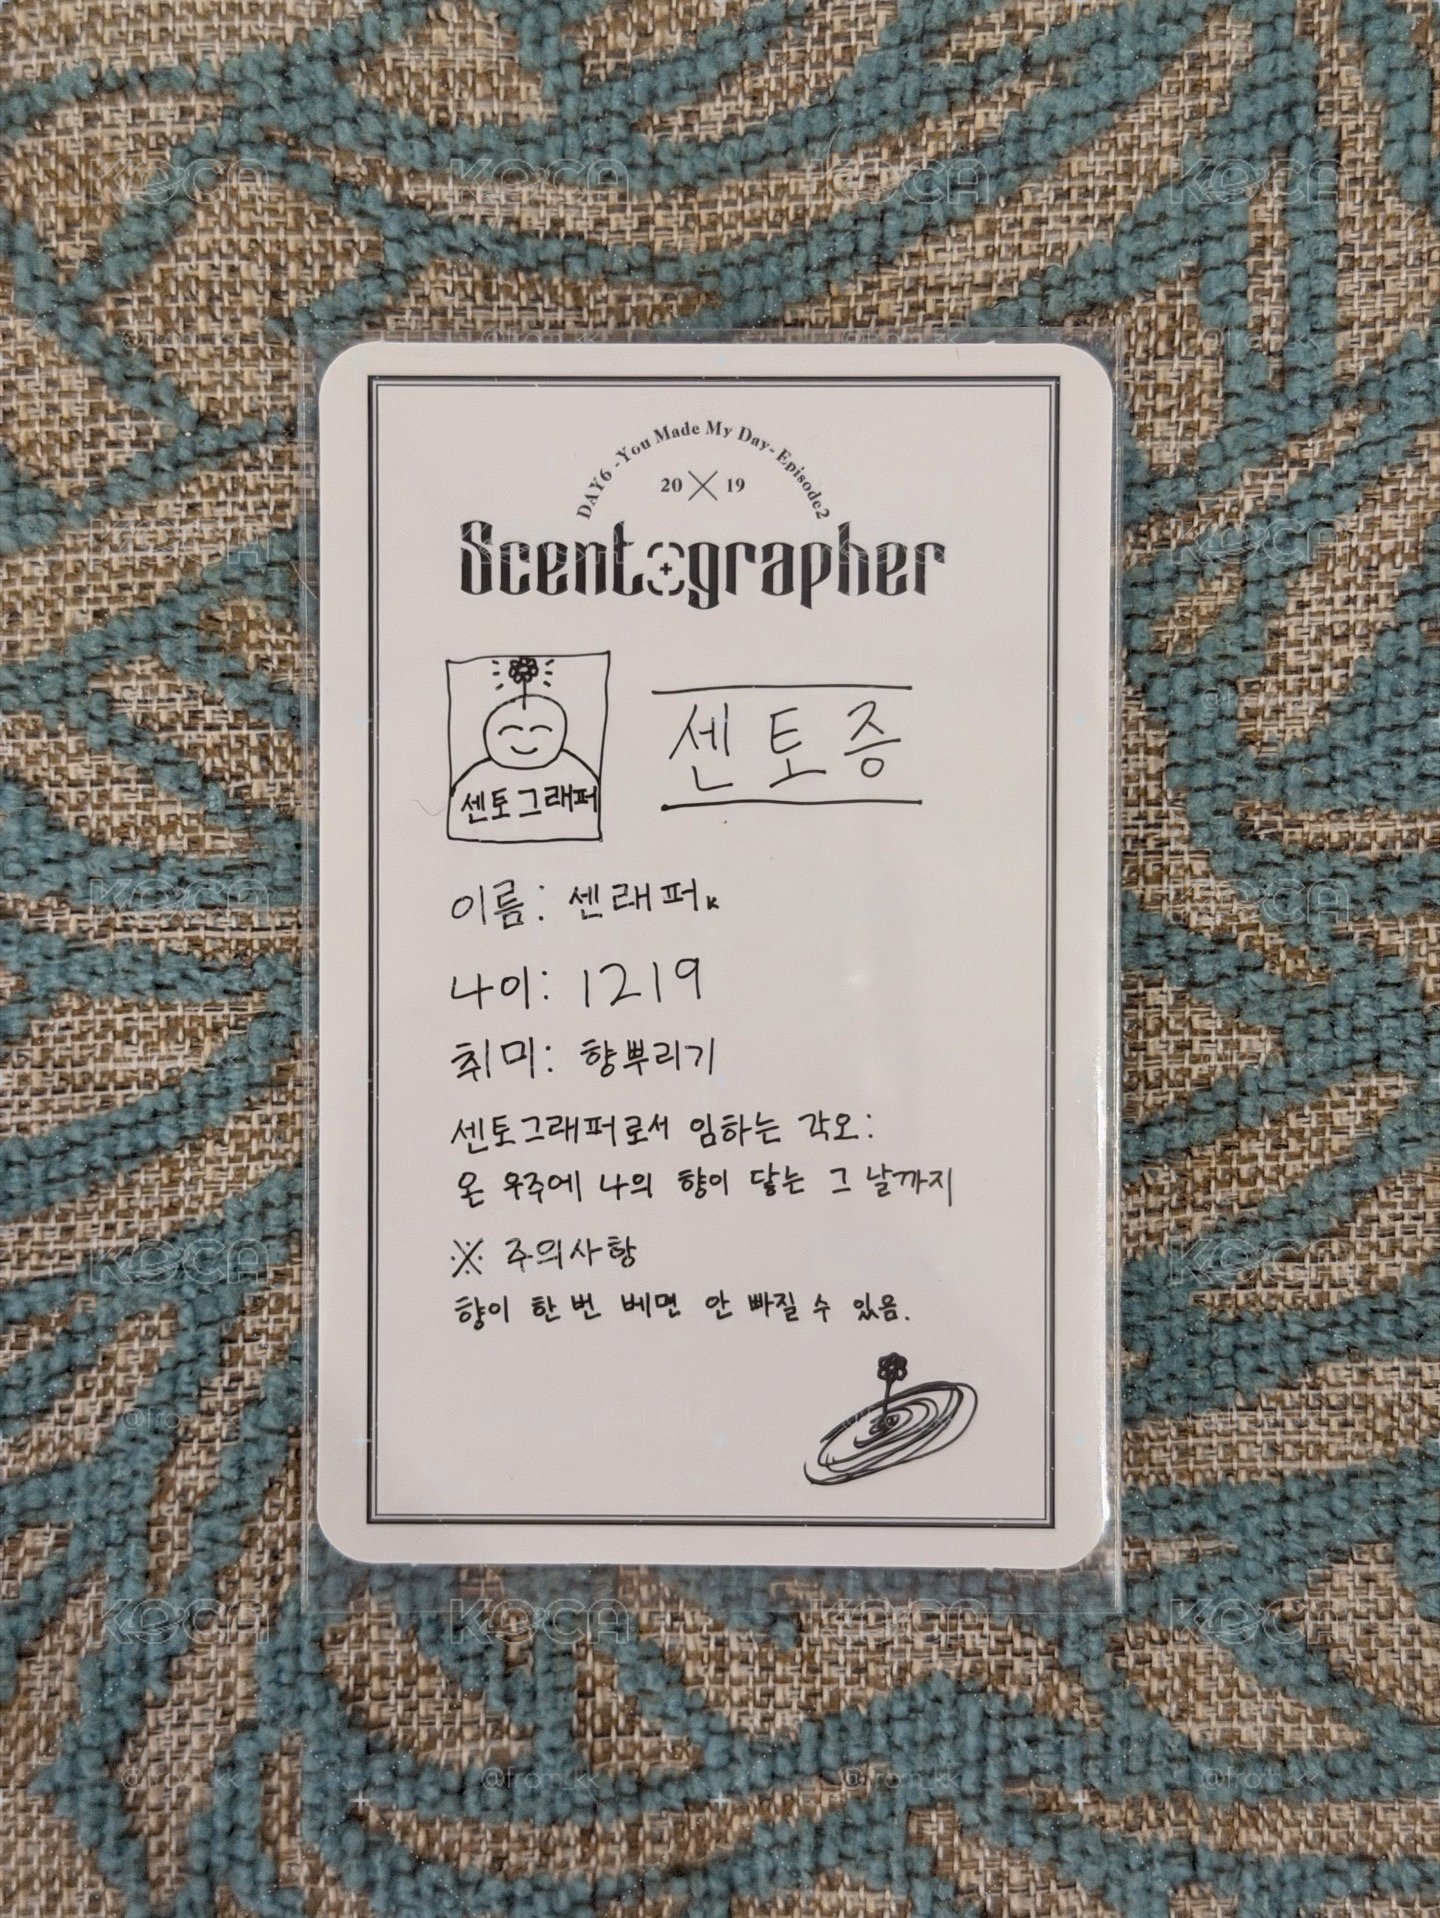 DAY6 -You Made My Day- Episode2
20 19
Scentographer
센토그래퍼
센토증
이름: 센래퍼k
나이: 1219
취미: 향뿌리기
센토그래퍼로서 임하는 각오:
온 우주에 나의 향이 닿는 그 날까지
※ 주의사항
향이 한 번 베면 안 빠질 수 있음.
KOCA
@from_kk